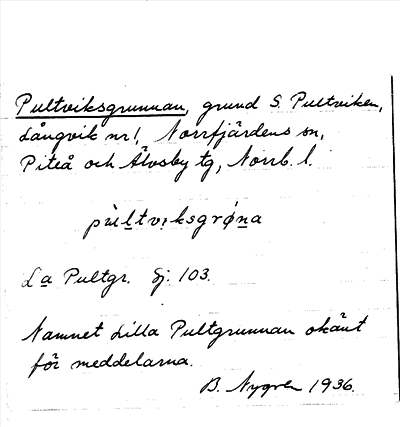 Pultviksgrunnan, grund S. Pultviken,
Långvik nr 1, Norrfjärdens sn,
Piteå och Älvsby tg, Norrb. l.
pùl̠tvıksgrøn̠a
La Pultgr. Sj. 103.
Namnet Lilla Pultgrunnan okänt
för meddelarna.
B. Nygren 1936.